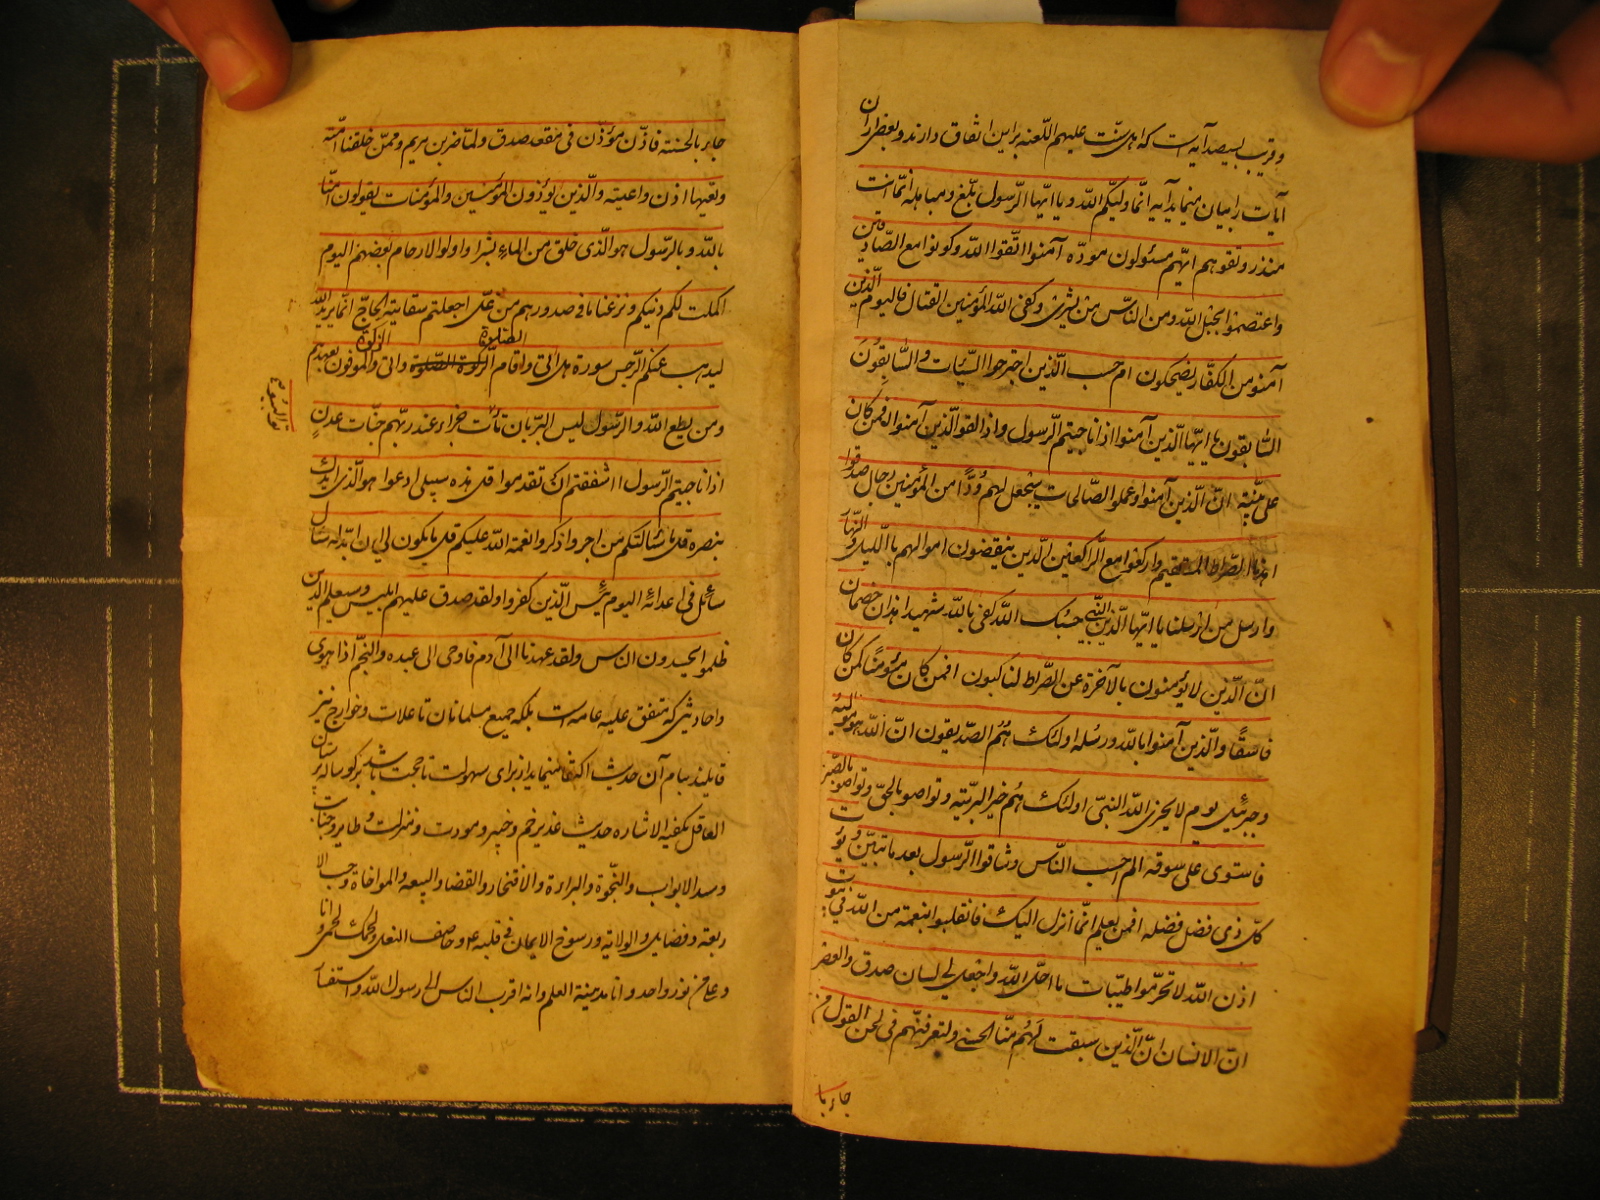 وقریب بسیصد آیه است که اهل سنت علیهم اللعنه براین اتفاق دارند وبعض ازان
آیات را بیان مینماید آیه انما ولیکم الله و یا ایها الرسول بلغ ومباهله انما انت
منذر وقفوهم انهم مسئولون مودّه آمنوا اتقوا الله وکونوا مع الصادقین
واعتصموا بحبل الله ومن الناس من یشری وکفی الله المؤمنین القتال فالیوم الذین
آمنوا من الکفار یضحکون ام حسب الذین اجترحوا السیئات والسابقون
السابقون یا ایها الذین آمنوا اذا ناجیتم الرسول واذا لقوا الذین آمنوا افمن کان
علی بینة انّ الذین آمنوا وعملوا الصالحات سیجعل لهم ودّاً من المؤمنین رجال صدقوا
اهدنا الصراط المستقیم وارکعوا مع الراکعین الذین ینفقضون اموالهم باللیل والنهار
وارسل من ارسلنا یا ایها الذین النبی حسبک الله کفی بالله شهیدا هذان خصمان
انّ الذین لا یؤمنون بالآخرة عن الصراط لناکبون افمن کان مؤمنا کمن کان
فاسقاً والذین آمنوا بالله ورسله اولئک هُم الصدیقون انّ الله هو مولیه
وجبرئیل یوم لا یخزی الله النبی اولئک هُم خیر البریّه وتواصو بالحق وتواصوا بالصبر
فاستوی علی سوقه الم احسب الناس وشاقوا الرسول بعد ما تبیّن ویؤت
کلّ ذی فضل فضله افمن یعلم انما أنزل الیک فانقلبوا بنعمة من الله فی بیوت
اذن الله لا تحرّموا طیّبات ما احلّ الله واجعل لی لسان صدق والعصر
انّ الانسان انّ الذین سبقت لَهُم منّا الحسنی ولتعرفنّهم فی لحن القول من
جاء با
جاء بالحسنة فاذّن مؤذّن فی مقعد صدق ولما ضرب بن مریم وممّن خلقنا امّة
وتعیها اذن واعیة والّذین یؤذون المؤمنین والمؤمنات یقولون آمنّا
بالله وبالرسول هو الذی خلق من الماء بشرا واولو الارحام بعضهم الیوم
اکملت لکم دینکم ونزعنا ما فی صدورهم من غلّ اجعلتم سقایة الحاجّ انّما یرید الله
لیذهب عنکم الرجس سورة هل اتی واقام الصلوة الزکوة واتی والموفون بعهدهم
ومن یطع الله والرسول لیس البرّ بان تأت جزاء عند ربهم جنّات عدن
اذا ناجیتم الرسول ااشفقتم ان تقدموا قل هذه سبیلی ادعوا هو الّذی ایدک
بنصره قل ما سئالتکم من اجر واذکروا نعمة الله علیکم قل ما یکون لی ان ابدله سأل
سائل فی اعدائه الیوم یئس الّذین کفروا ولقد صدق علیهم ابلیس وسیعلم الذین
ظلموا یحسدون الناس ولقد عهدنا الی آدم فاوحی الی عبده والنجم اذا هوی
واحادیثی که متفق علیه عامه است بلکه جمیع مسلمانان تا غلات وخوارج نیز
قایلند بنام آن حدیث اکتفا مینماید از برای سهولت تا حجت باشد بر کوساله پرستان
العاقل یکفیه الاشاره حدیث غدیر خم وخیبر ومودت ومنزلت وطایر وجنات
وسد الابواب والنجوة والبرارة والافتخار والقضا والبیعه والمواخاة وحب الا
ربعة وفضایل والولایة ورسوخ الایمان فی قلبه ع وخاصف النعل ولحمک لحمی وانا
وعلی من نور واحد وانا مدینة العلم وانه اقرب الناس الی رسول الله